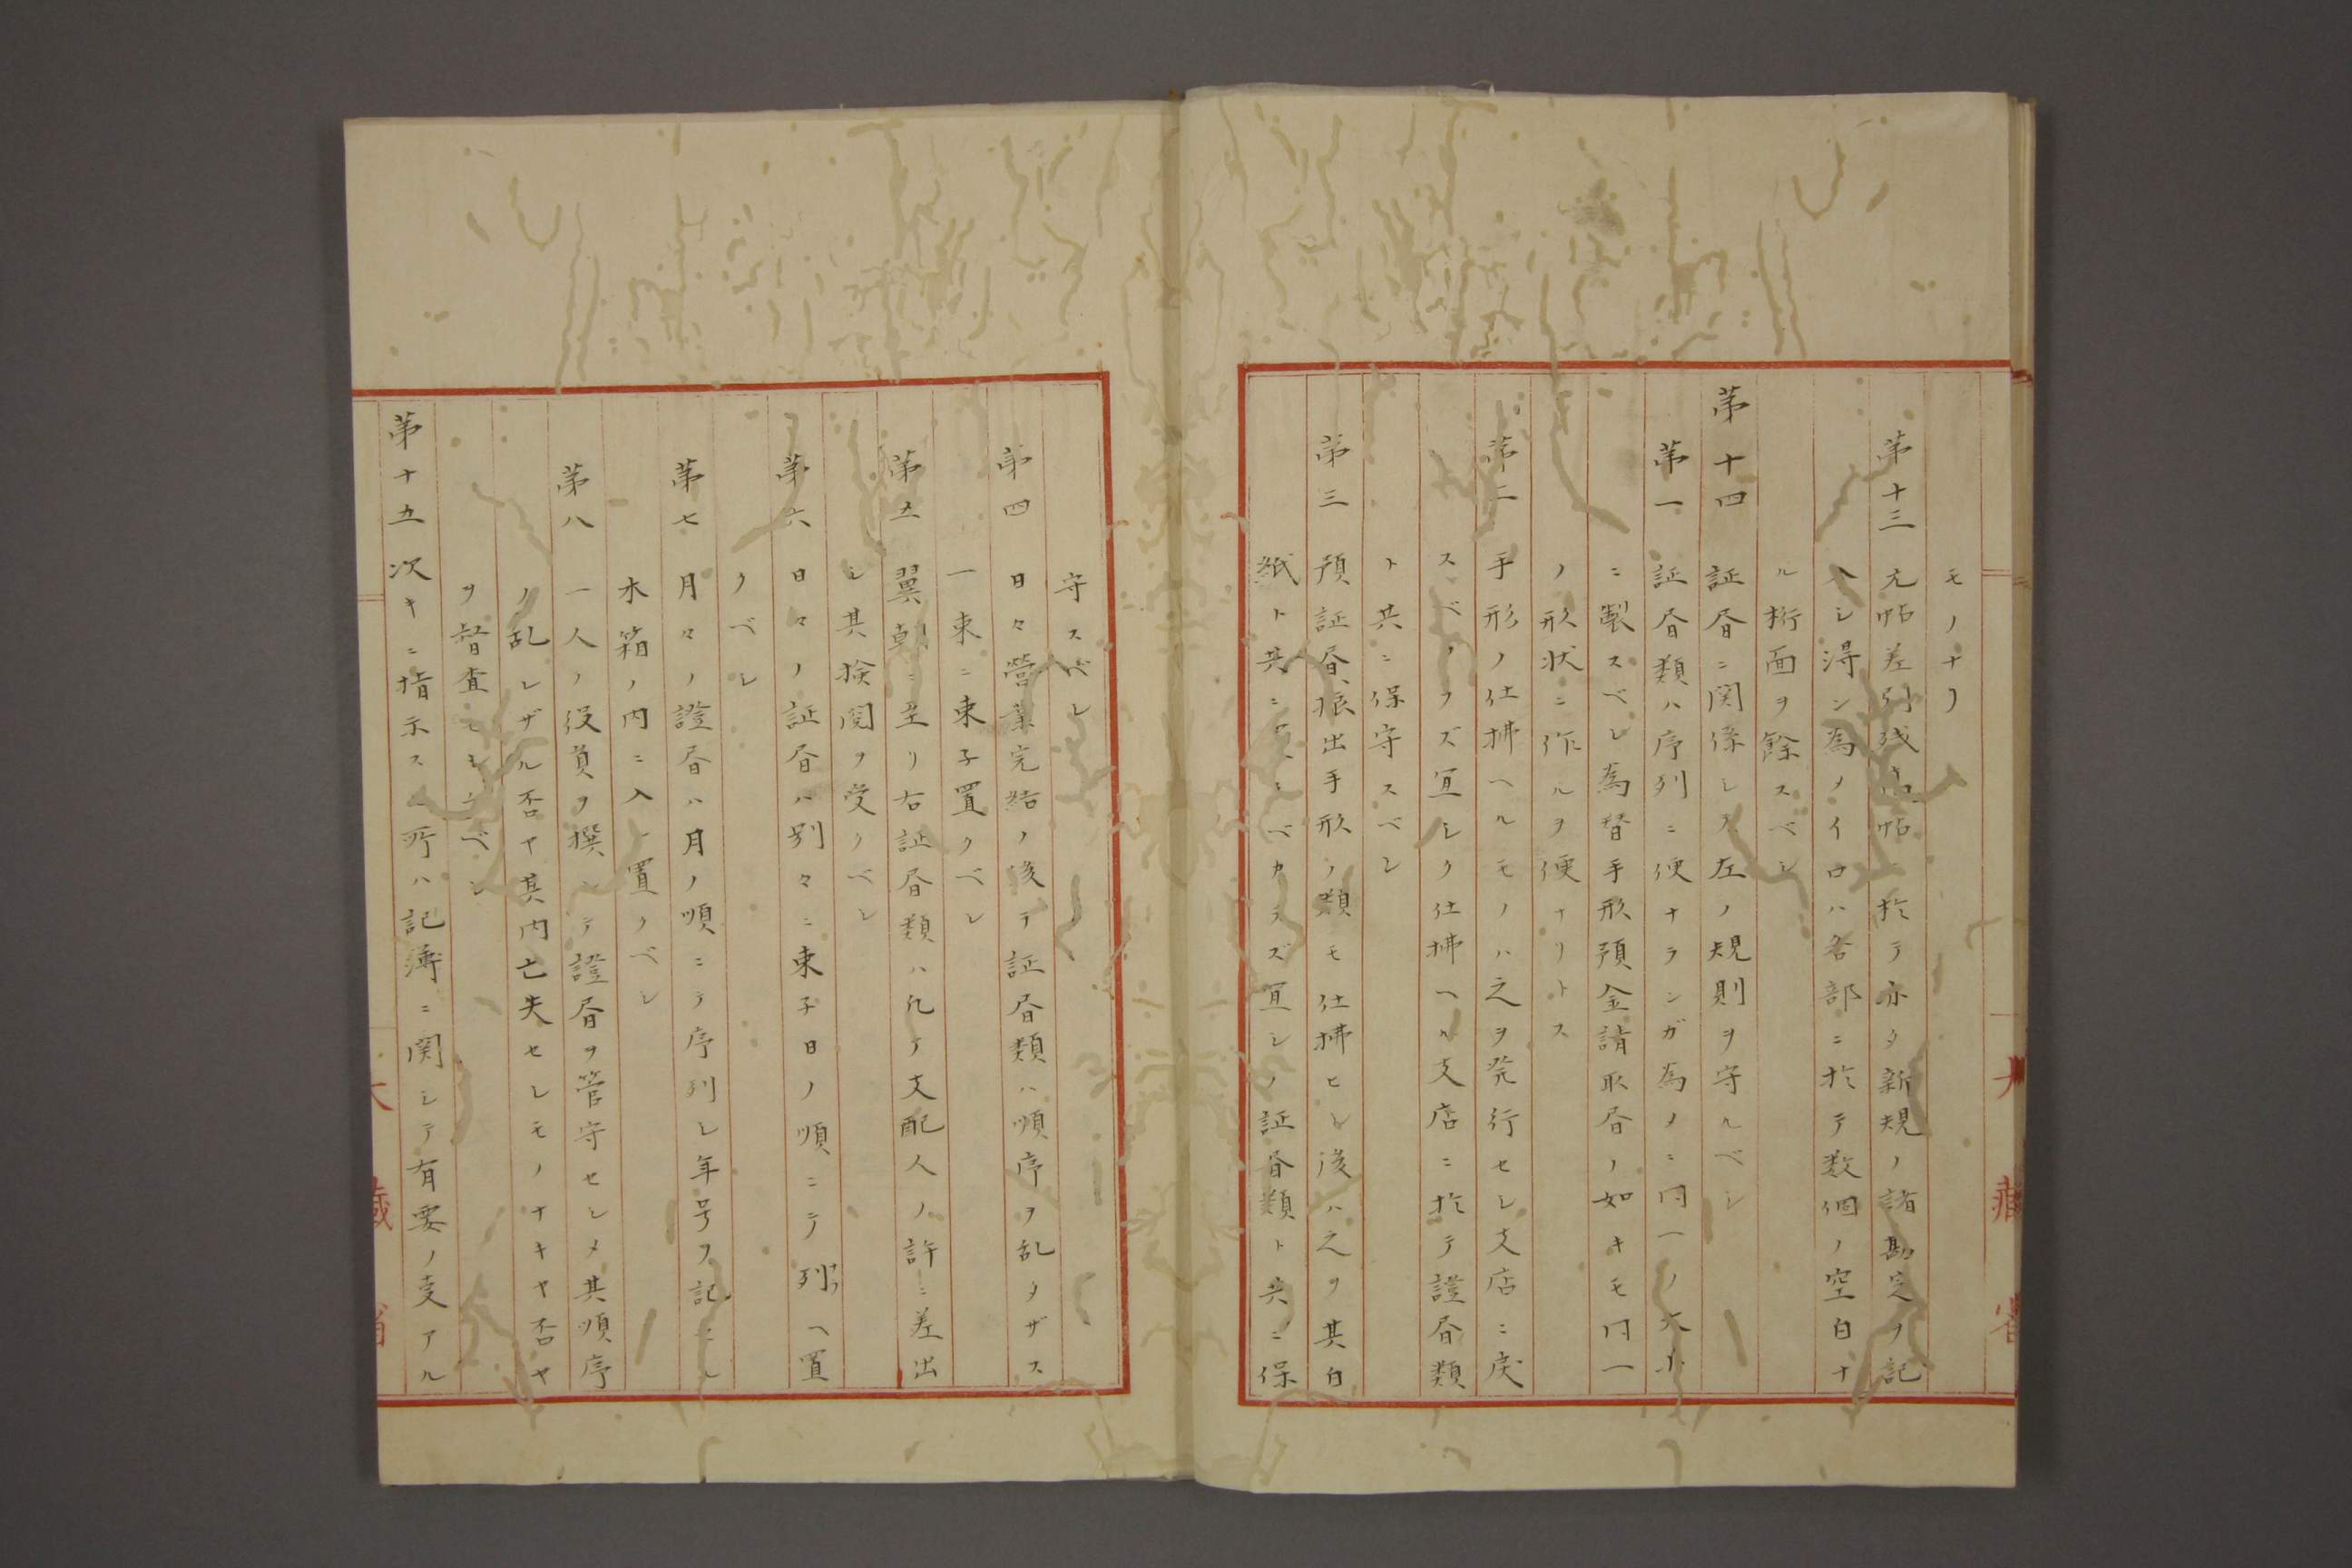 モノナリ
第十三 元帖差引残高帖ニ於テ亦タ新規ノ諸勘定ヲ記
入シ得ン為メイロハ各部ニ於テ数個ノ空白ナ
ル桁面ヲ餘スベシ
第十四 証書ニ関係シテ左ノ規則ヲ守ルベシ
第一 証書類ハ序列ニ便ナランガ為メニ同一ノ大小
ニ製スベシ為替手形預金請取書ノ如キモ同一
ノ形状ニ作ルヲ便ナリトス
第二 手形ノ仕拂ヘルモノハ之ヲ発行セシ支店ニ戻
スベカラズ宜シク仕拂ヘル支店ニ於テ證書類
ト共ニ保守スベシ
第三 預証書、振出手形ノ類モ仕拂ヒシ後ハ之ヲ其白
紙ト共ニ ベカラズ宜シク証書類ト共ニ保
守スベシ
第四 日々營業完結ノ後テ証書類ハ順序ヲ乱タザス
一束ニ束子置クベシ
第五 翼朝ニ至リ右証書類ハ凡テ支配人ノ許ニ差出
シ其検閲ヲ受クベシ
第六 日々ノ証書ハ別々ニ束子日ノ順ニテ列ヘ置
クベシ
第七 月々ノ證書ハ月ノ順ニテ序列シ年号ヲ記シ
木箱ノ内ニ入レ置クベシ
第八 一人ノ役員ヲ撰ンデ證書ヲ管守セシメ其順序
ノ乱レザル否ヤ其内亡失セシモノナキヤ否ヤ
ヲ督査セシムベシ
第十五 次キニ指示スル所ハ記簿ニ関シテ有要ノ支アル
大藏省
大藏省